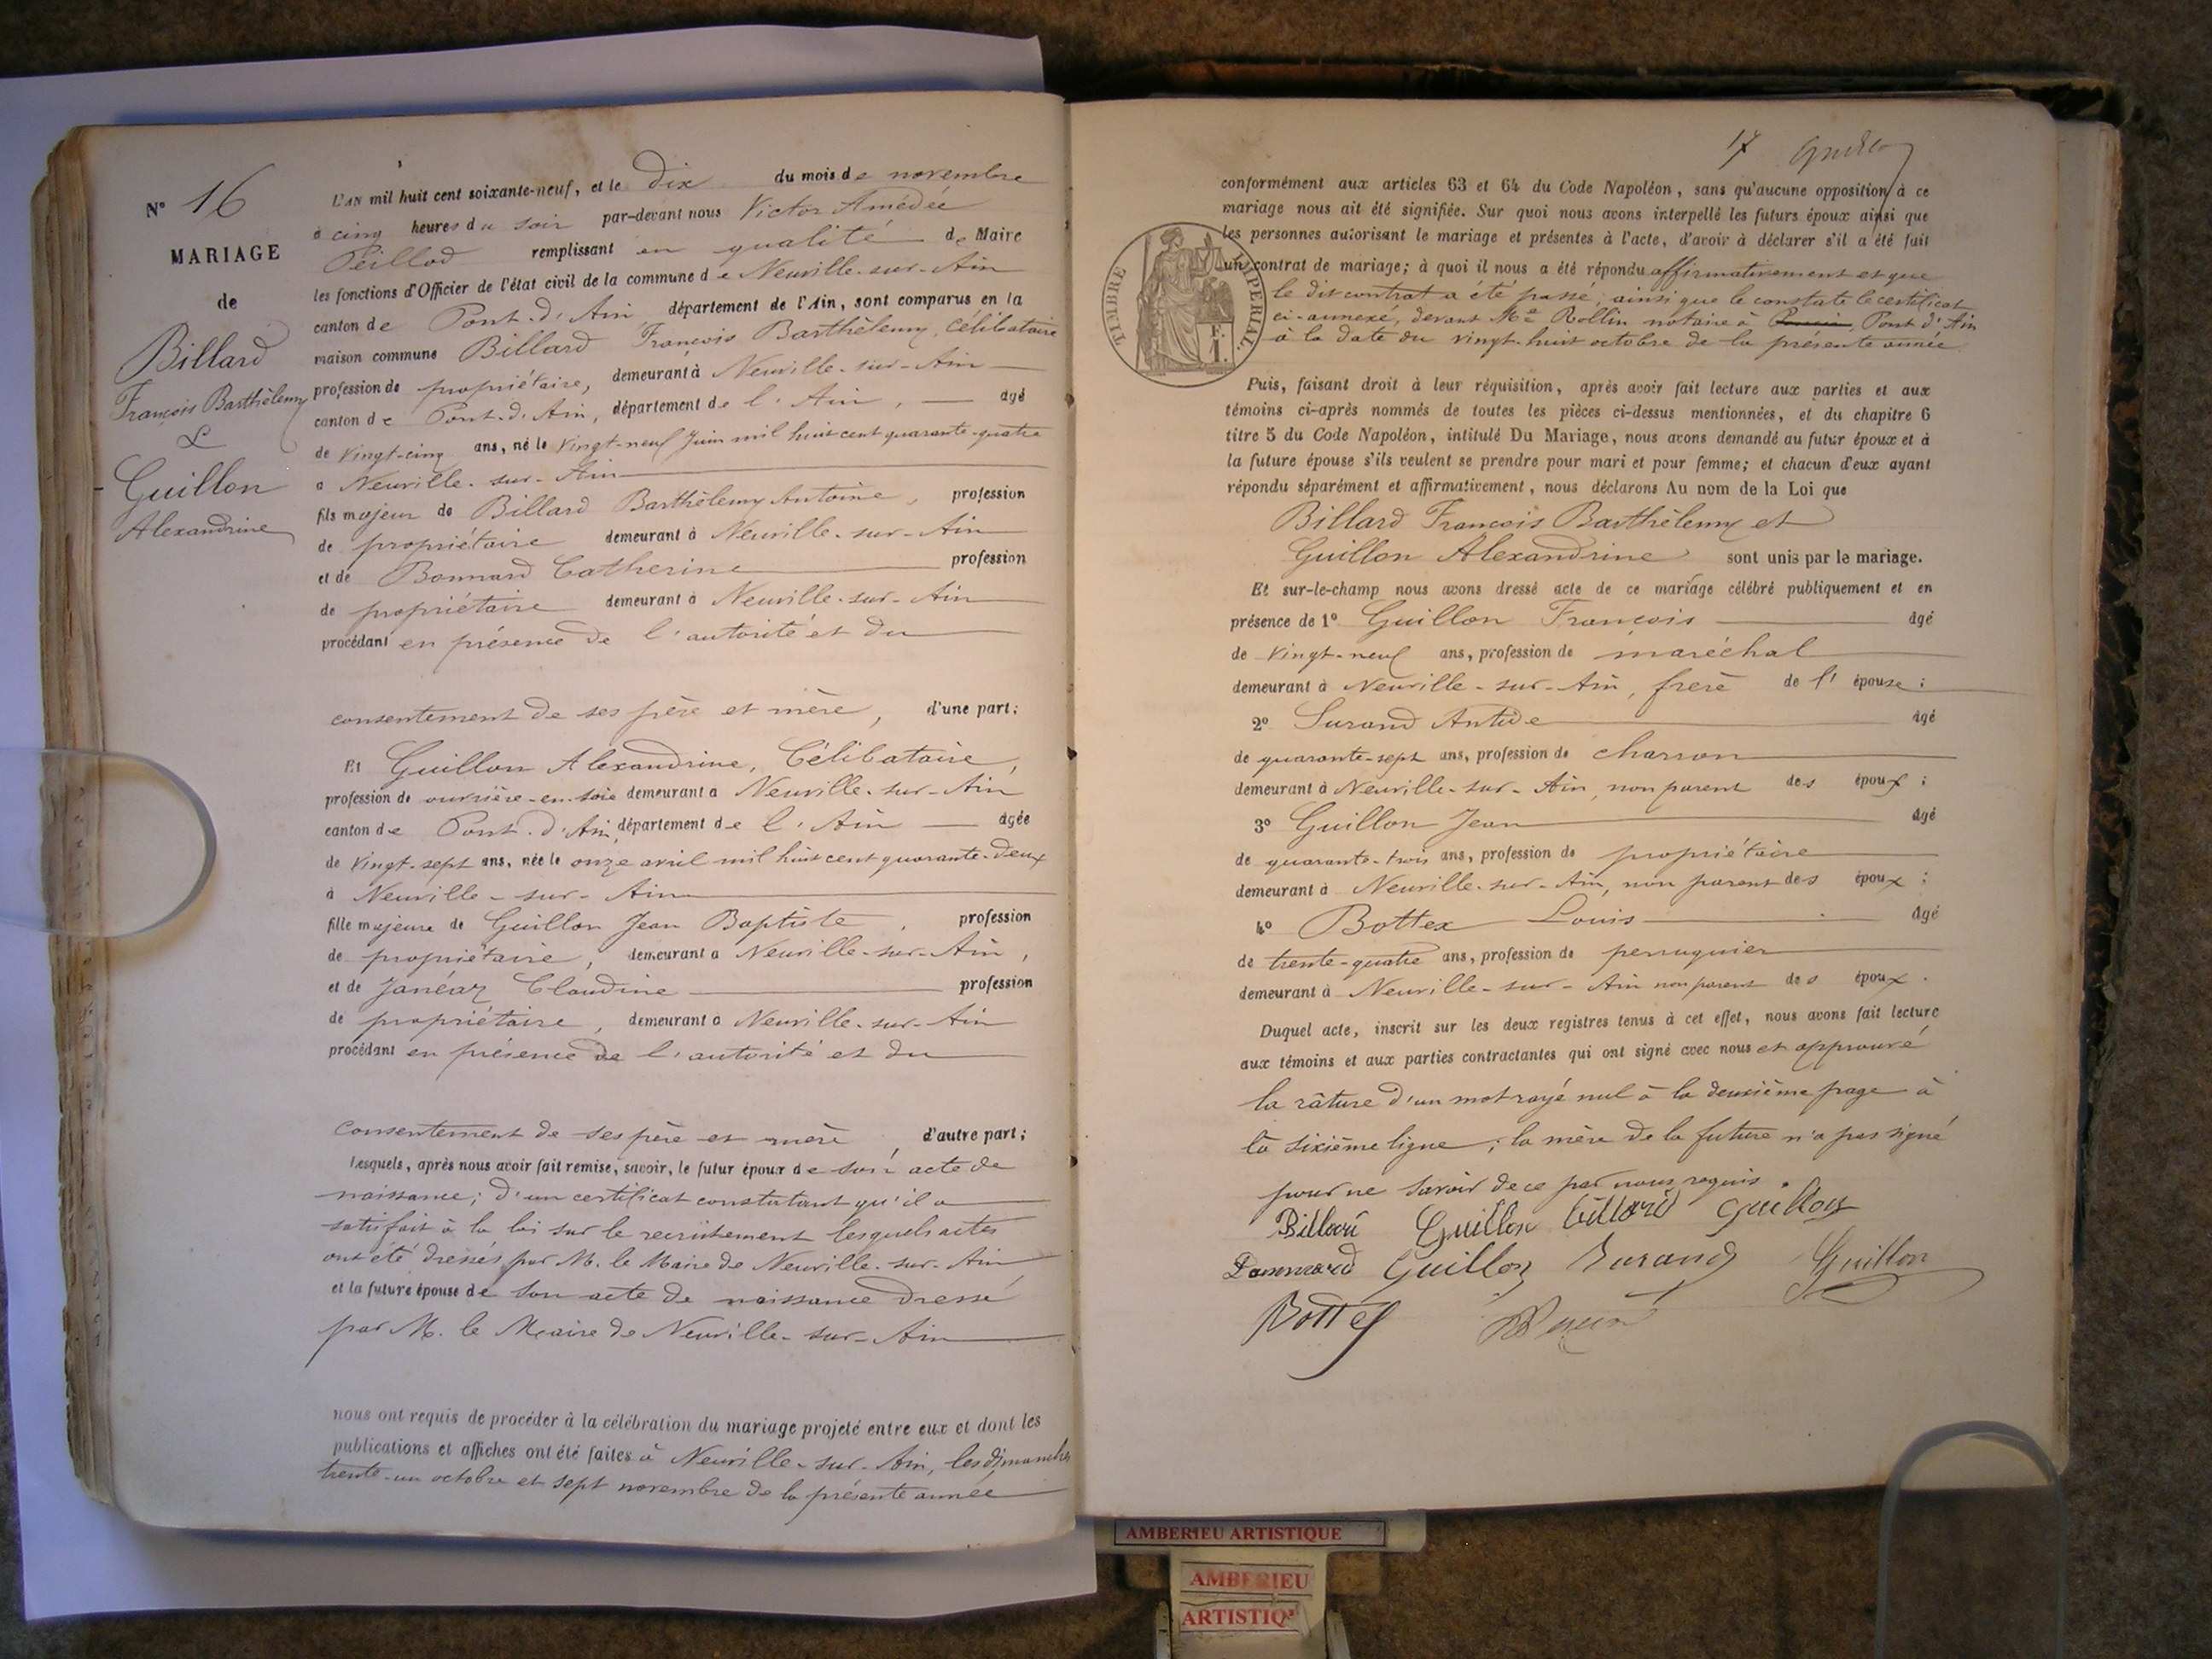 N° 16
MARIAGE
de
Billard
François Barthélemy
&
Guillon
Alexandrine
L'AN mil huit cent soixante-neuf, et le dix du mois de novembre
à cinq heures du soir par-devant nous Victor Amédée
Peillod remplissant en qualité de Maire
les fonctions d'Officier de l'état civil de la commune de Neuville-sur-Ain
canton de Pont-d'Ain département de l'Ain, sont comparus en la
maison commune Billard François Barthélemy, célibataire
profession de propriétaire, demeurant à Neuville-sur-Ain
canton de Pont-d'Ain, département de l'Ain, âgé
de vingt-cinq ans, né le vingt-neuf Juin mil huit cent quarante-quatre
à Neuville-sur-Ain
fils majeur de Billard Barthélemy Antoine, profession
de propriétaire demeurant à Neuville-sur-Ain
et de Bonnard Catherine profession
de propriétaire demeurant à Neuville-sur-Ain
procédant en présence de l'autorité et du
consentement de ses père et mère, d'une part;
Et Guillon Alexandrine, Célibataire,
profession de ouvrière-en-soie demeurant à Neuville-sur-Ain
canton de Pont-d'Ain, département de l'Ain âgée
de vingt-sept ans, née le onze avril mil huit cent quarante-deux
à Neuville-sur-Ain
fille majeure de Guillon Jean Baptiste, profession
de propriétaire, demeurant à Neuville-sur-Ain,
et de Janéaz Claudine profession
de propriétaire, demeurant à Neuville-sur-Ain
procédant en présence de l'autorité et du
consentement de ses père et mère, d'autre part;
Lesquels, après nous avoir fait remise, savoir, le futur époux de son acte de
naissance; d'un certificat constatant qu'il a
satisfait à la loi sur le recrutement lesquels actes
ont été dressés par M. le Maire de Neuville-sur-Ain
et la future épouse de son acte de naissance dressé
par M. le Maire de Neuville-sur-Ain
nous ont requis de procéder à la célébration du mariage projeté entre eux et dont les
publications et affiches ont été faites à Neuville-sur-Ain, les dimanches
trente-un octobre et sept novembre de la présente année
17
conformément aux articles 63 et 64 du Code Napoléon, sans qu'aucune opposition à ce
mariage nous ait été signifiée. Sur quoi nous avons interpellé les futurs époux ainsi que
les personnes autorisant le mariage et présentes à l'acte, d'avoir à déclarer s'il a été fait
un contrat de mariage; à quoi il nous a été répondu affirmativement et que
le dit contrat a été passé; ainsi que le constate le certificat
ci-annexé, devant Me Rollin notaire à Pont d'Ain
à la date du vingt-huit octobre de la présente année
TIMBRE IMPERIAL
F.
1.
Puis, faisant droit à leur réquisition, après avoir fait lecture aux parties et aux
témoins ci-après nommés de toutes les pièces ci-dessus mentionnées, et du chapitre 6
titre 5 du Code Napoléon, intitulé Du Mariage, nous avons demandé au futur époux et à
la future épouse s'ils veulent se prendre pour mari et pour femme; et chacun d'eux ayant
répondu séparément et affirmativement, nous déclarons Au nom de la Loi que
Billard François Barthélemy et
Guillon Alexandrine sont unis par le mariage.
Et sur-le-champ nous avons dressé acte de ce mariage célébré publiquement et en
présence de 1° Guillon François âgé
de vingt-neuf ans, profession de maréchal
demeurant à Neuville-sur-Ain, frère de l'épouse;
2° Durand Antide âgé
de quarante-sept ans, profession de charron
demeurant à Neuville-sur-Ain, non parent des époux;
3° Guillon Jean âgé
de quarante-trois ans, profession de propriétaire
demeurant à Neuville-sur-Ain, non parent des époux;
4° Bottex Louis âgé
de trente-quatre ans, profession de perruquier
demeurant à Neuville-sur-Ain non parent des époux.
Duquel acte, inscrit sur les deux registres tenus à cet effet, nous avons fait lecture
aux témoins et aux parties contractantes qui ont signé avec nous et approuvé
la râture d'un mot rayé nul à la deuxième page à
la sixième ligne; la mère de la future n'a pas signé
pour ne savoir de ce par nous requis.
Billard Guillon billard Guillon
Bonnard Guillon Durand Guillon
Bottex
AMBERIEU ARTISTIQUE
AMBERIEU
ARTISTIQ